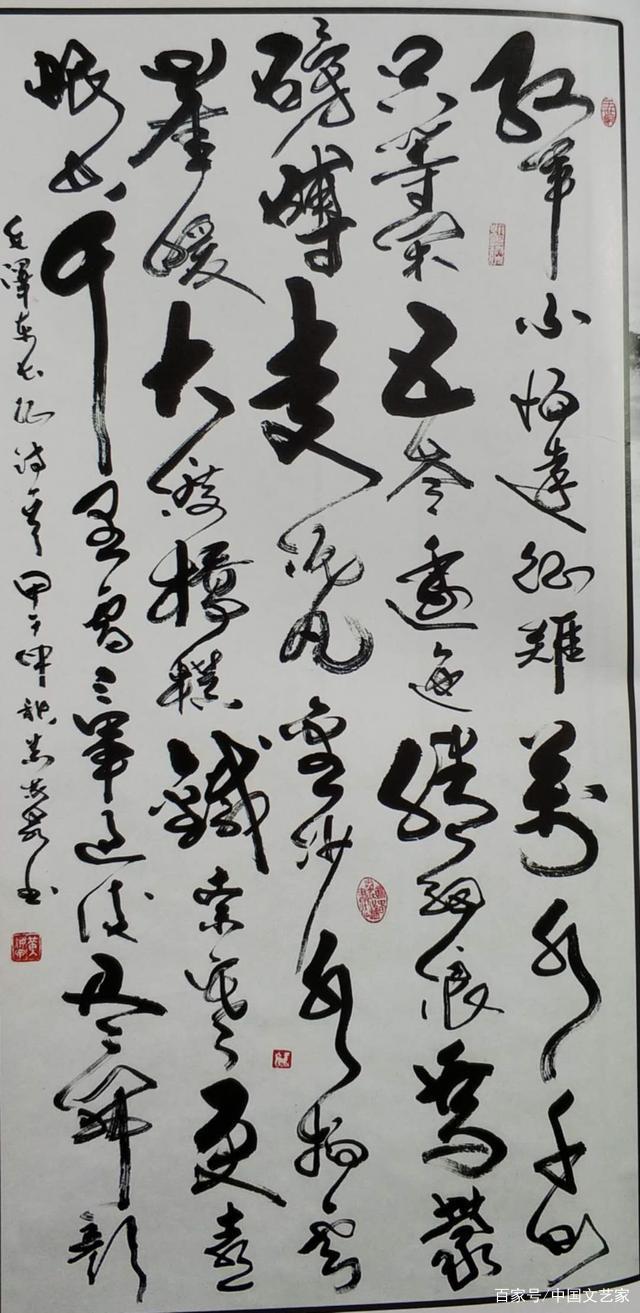 红軍不怕遠征難萬水千山
只等閑五岭逶迤腾细浪烏蒙
磅礴走泥丸金沙水拍雲
崖暖大渡橋横鐵索寒更喜
岷山千里雪三軍过后尽開颜
毛澤东长征诗 甲午年 书
百家号/中国文艺家